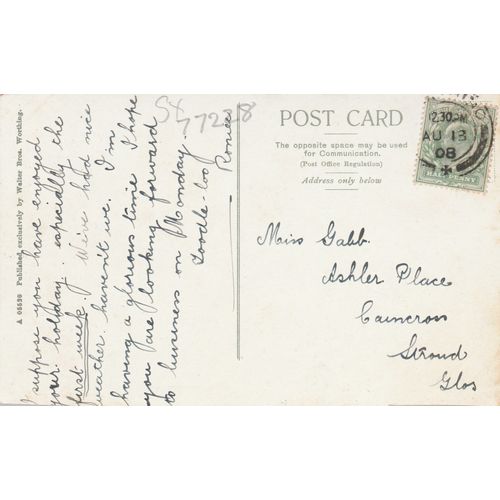 I suppose you have enjoyed
your holiday. especially the
first week. We've had nice
weather haven't we. I'm
having a glorious time I hope
you are looking forward
to business on Monday.
Toodle-loo
Ronnie
A 05526 Published exclusively by Walter Bros. Worthing.
77228
POST CARD
The opposite space may be used
for Communication.
(Post Office Regulation)
Address only below
12.30 PM
AU 13
08
Miss Gabb.
Ashler Place
Caincross
Stroud
Glos